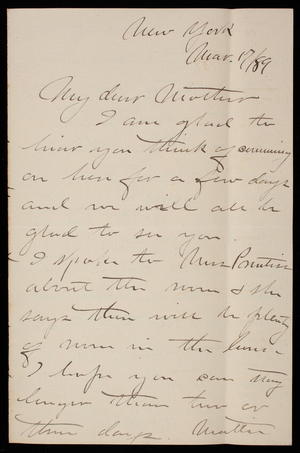 New York
Mar. 17/89
My dear Mother
I am glad to
hear you think of coming
on here for a few days
and we will all be
glad to see you.
I spoke to Mrs Prentiss
about the room & she
says there will be plenty
of room in the house
I hope you can stay
longer than two or
three days. Mattie